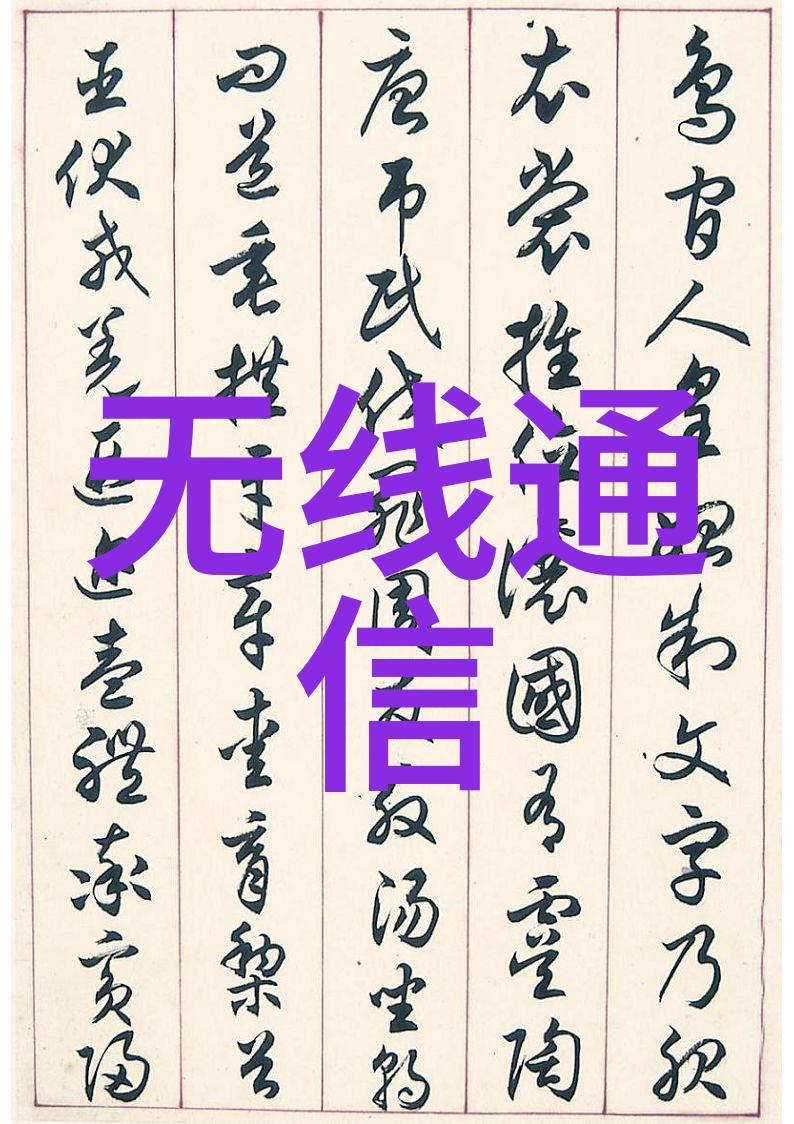 鳥官人皇始制文字乃服
衣裳推位讓國有虞陶
唐吊民伐罪周發殷湯坐朝
問道垂拱平章愛育黎首
臣伏戎羌遐邇壹體率賓歸
无线通
信